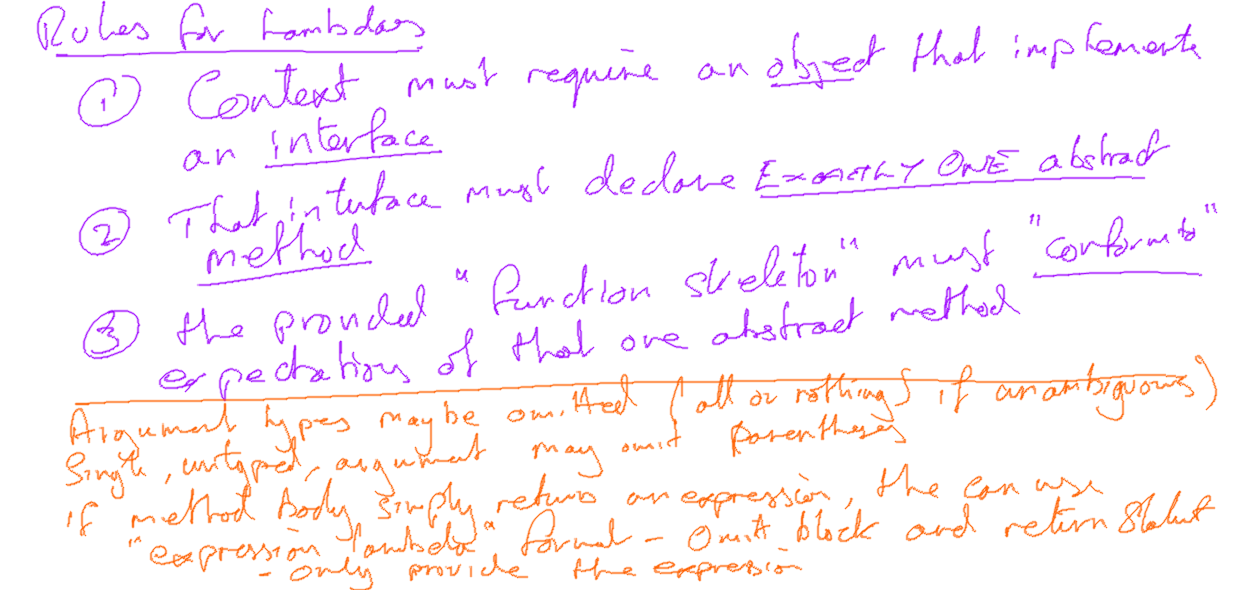 Rules for Lambdas
① Context must require an object that implements
an interface
② That interface must declare EXACTLY ONE abstract
method
③ the provided "function skeleton" must "conform to"
expectations of that one abstract method
Argument types maybe omitted (all or nothing) if unambiguous)
Single, untyped, argument may omit parentheses
if method body simply returns an expression, the can use
"expression lambda" format - Omit block and return
- only provide the expression